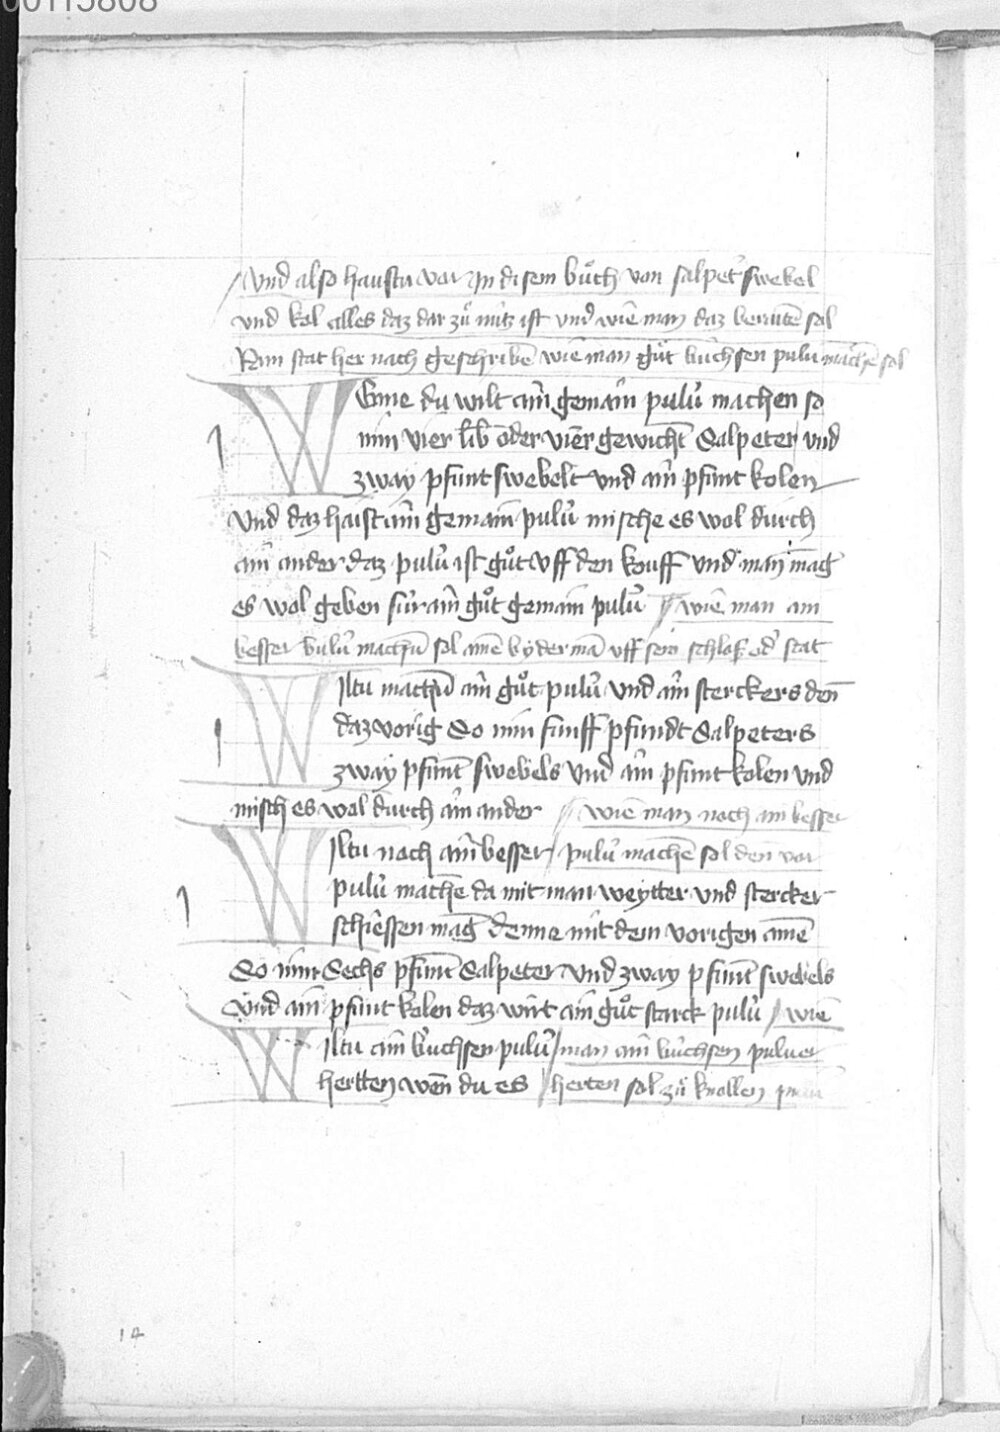 00115808
Und also haustu vor In disem bůch von salpet̉ swebel
und kol alles daz dar zů nütz ist und wie man daz beraitē sol
Nun stat her nach geschribē wie man gůt büchsen pulū machē sol
WEnne du wilt ain gemain pulū machen so
nim vier lib oder vier gewicht Salpeter und
zway pfunt swebelt und ain pfunt kolen
Und daz haist ain gemain pulū mische es wol durch
ain ander daz pulū ist gůt uff den kouff und man mag
es wol geben für ain gůt gemain pulū wie man ain
besser bulū machen sol ainē byderman uff sein schloß od̉ stat
WIltu machen ain gůt pulū und ain sterckers den
daz vorig So nim fünff pfundt Salpeters
zway pfunt swebels und ain pfunt kolen und
misch es wol durch ain ander wie man noch ain besser
WIltu noch ain besser pulū machē sol den vor
pulū machē da mit man weytter und stercker
schiessen mag denne mit dem vorigen ainē
So nim Sechs pfunt Salpeter und zway pfunt swebels
und ain pfunt kolen daz wirt ain gůt starck pulū wie
WIltu ain büchsen pulū man ain büchsen pulver
hertten wen du es herten sol zů knollen
14